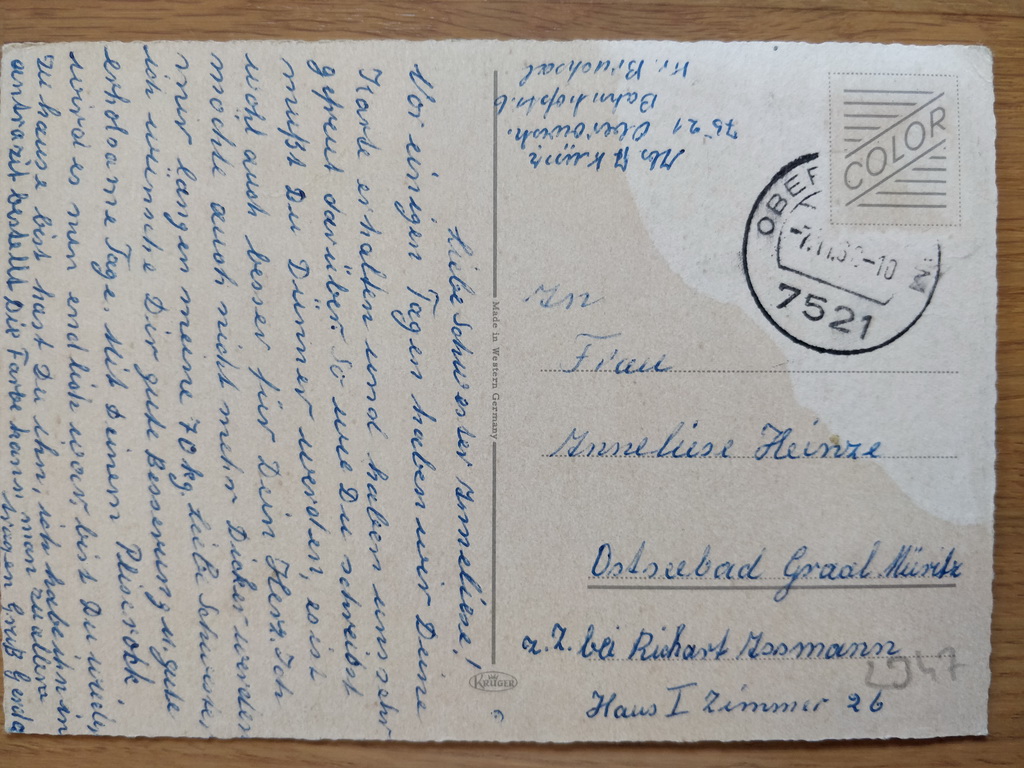 Liebe Schwester Anneliese!
Vor einigen Tagen haben wir Deine
Karte erhalten und haben uns sehr
gefreut darüber. So wie Du schreibst
mußt Du Dünner werden, es ist
wohl auch besser für Dein Herz. Ich
mochte auch nicht mehr Dicker werden
mir langen meine 70 kg. Liebe Schwester
ich wünsche Dir gute Besserung u. gute
erholsame Tage. Mit Deinem
wird es nun endlich war, bist Du wieder
zuhause bist hast Du ihn, ich habe ihn in
antrazit bestellt Die Farbe kann man zu allem
tragen Gruß Gerda
Made in Western Germany
KRÜGER
Abs. A Kunz
7521 Oberöwish.
Bahnhofstr. 6
Kr. Bruchsal
COLOR
7521
An
Frau
Anneliese Heinze
Ostseebad Graal Müritz
z. Z. bei Richart Assmann
Haus I Zimmer 26
2947